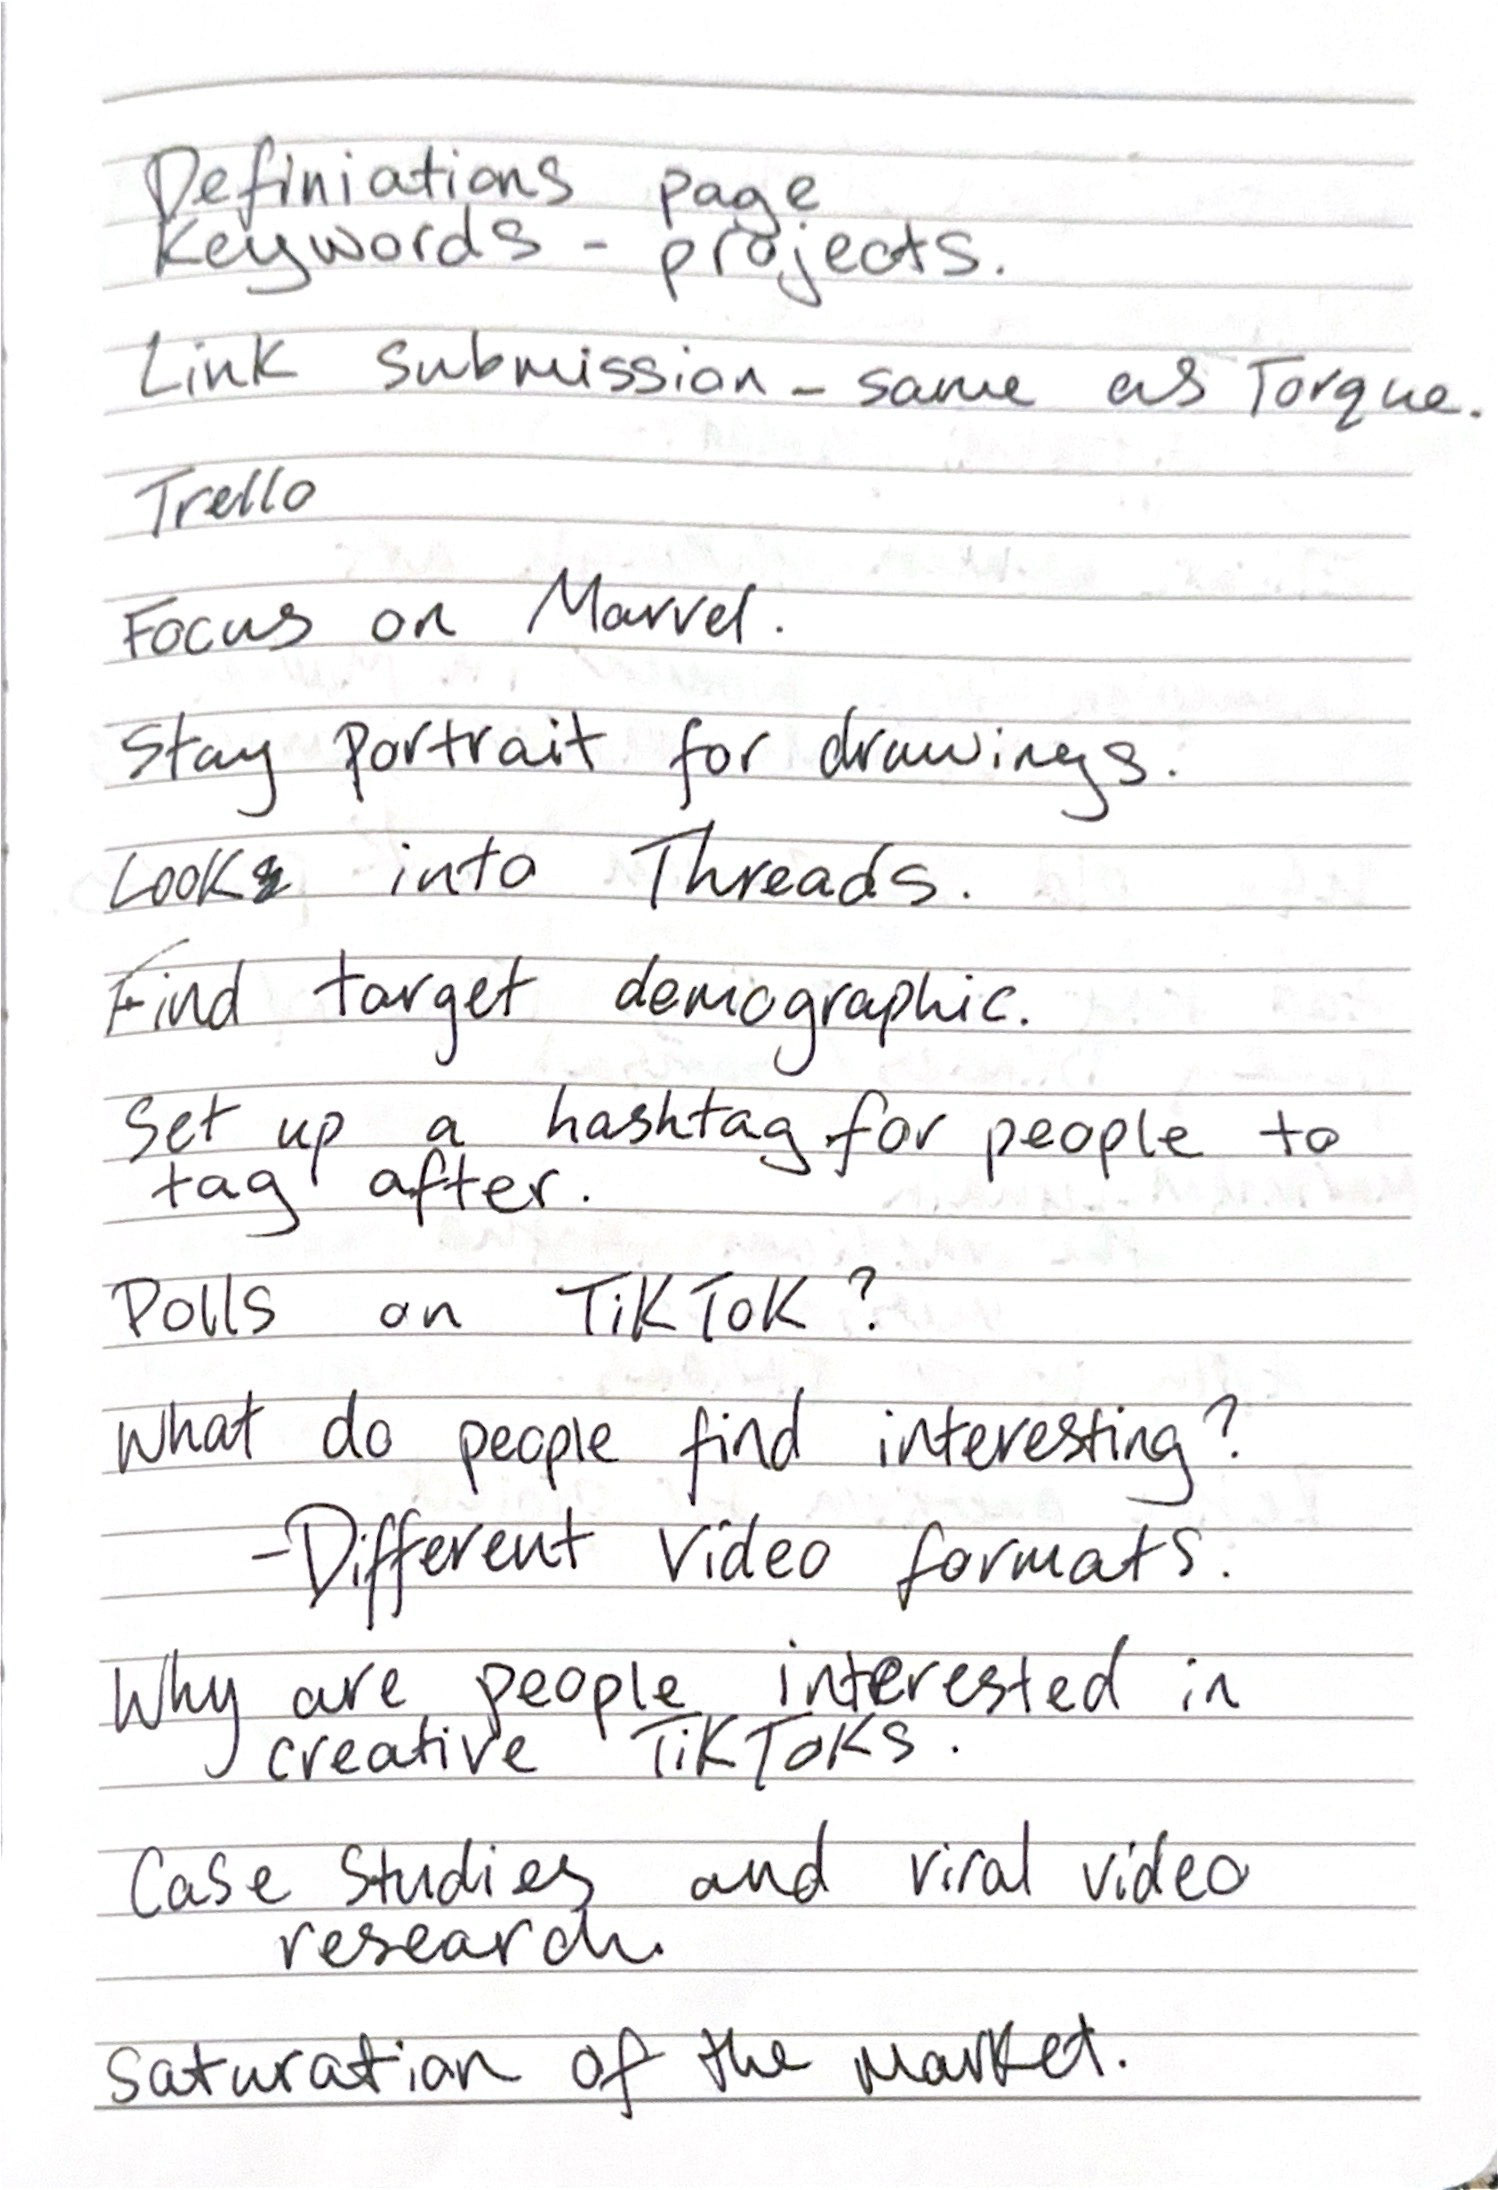 Definiations page
Keywords - projects.
Link submission - same as Torque.
Trello
Focus on Marvel.
Stay portrait for drawings.
Look into Threads.
Find target demographic.
Set up a hashtag for people to
tag after.
Polls on TikTok?
What do people find interesting?
-Different video formats.
Why are people interested in
creative TikToks.
Case studies and viral video
research.
Saturation of the market.